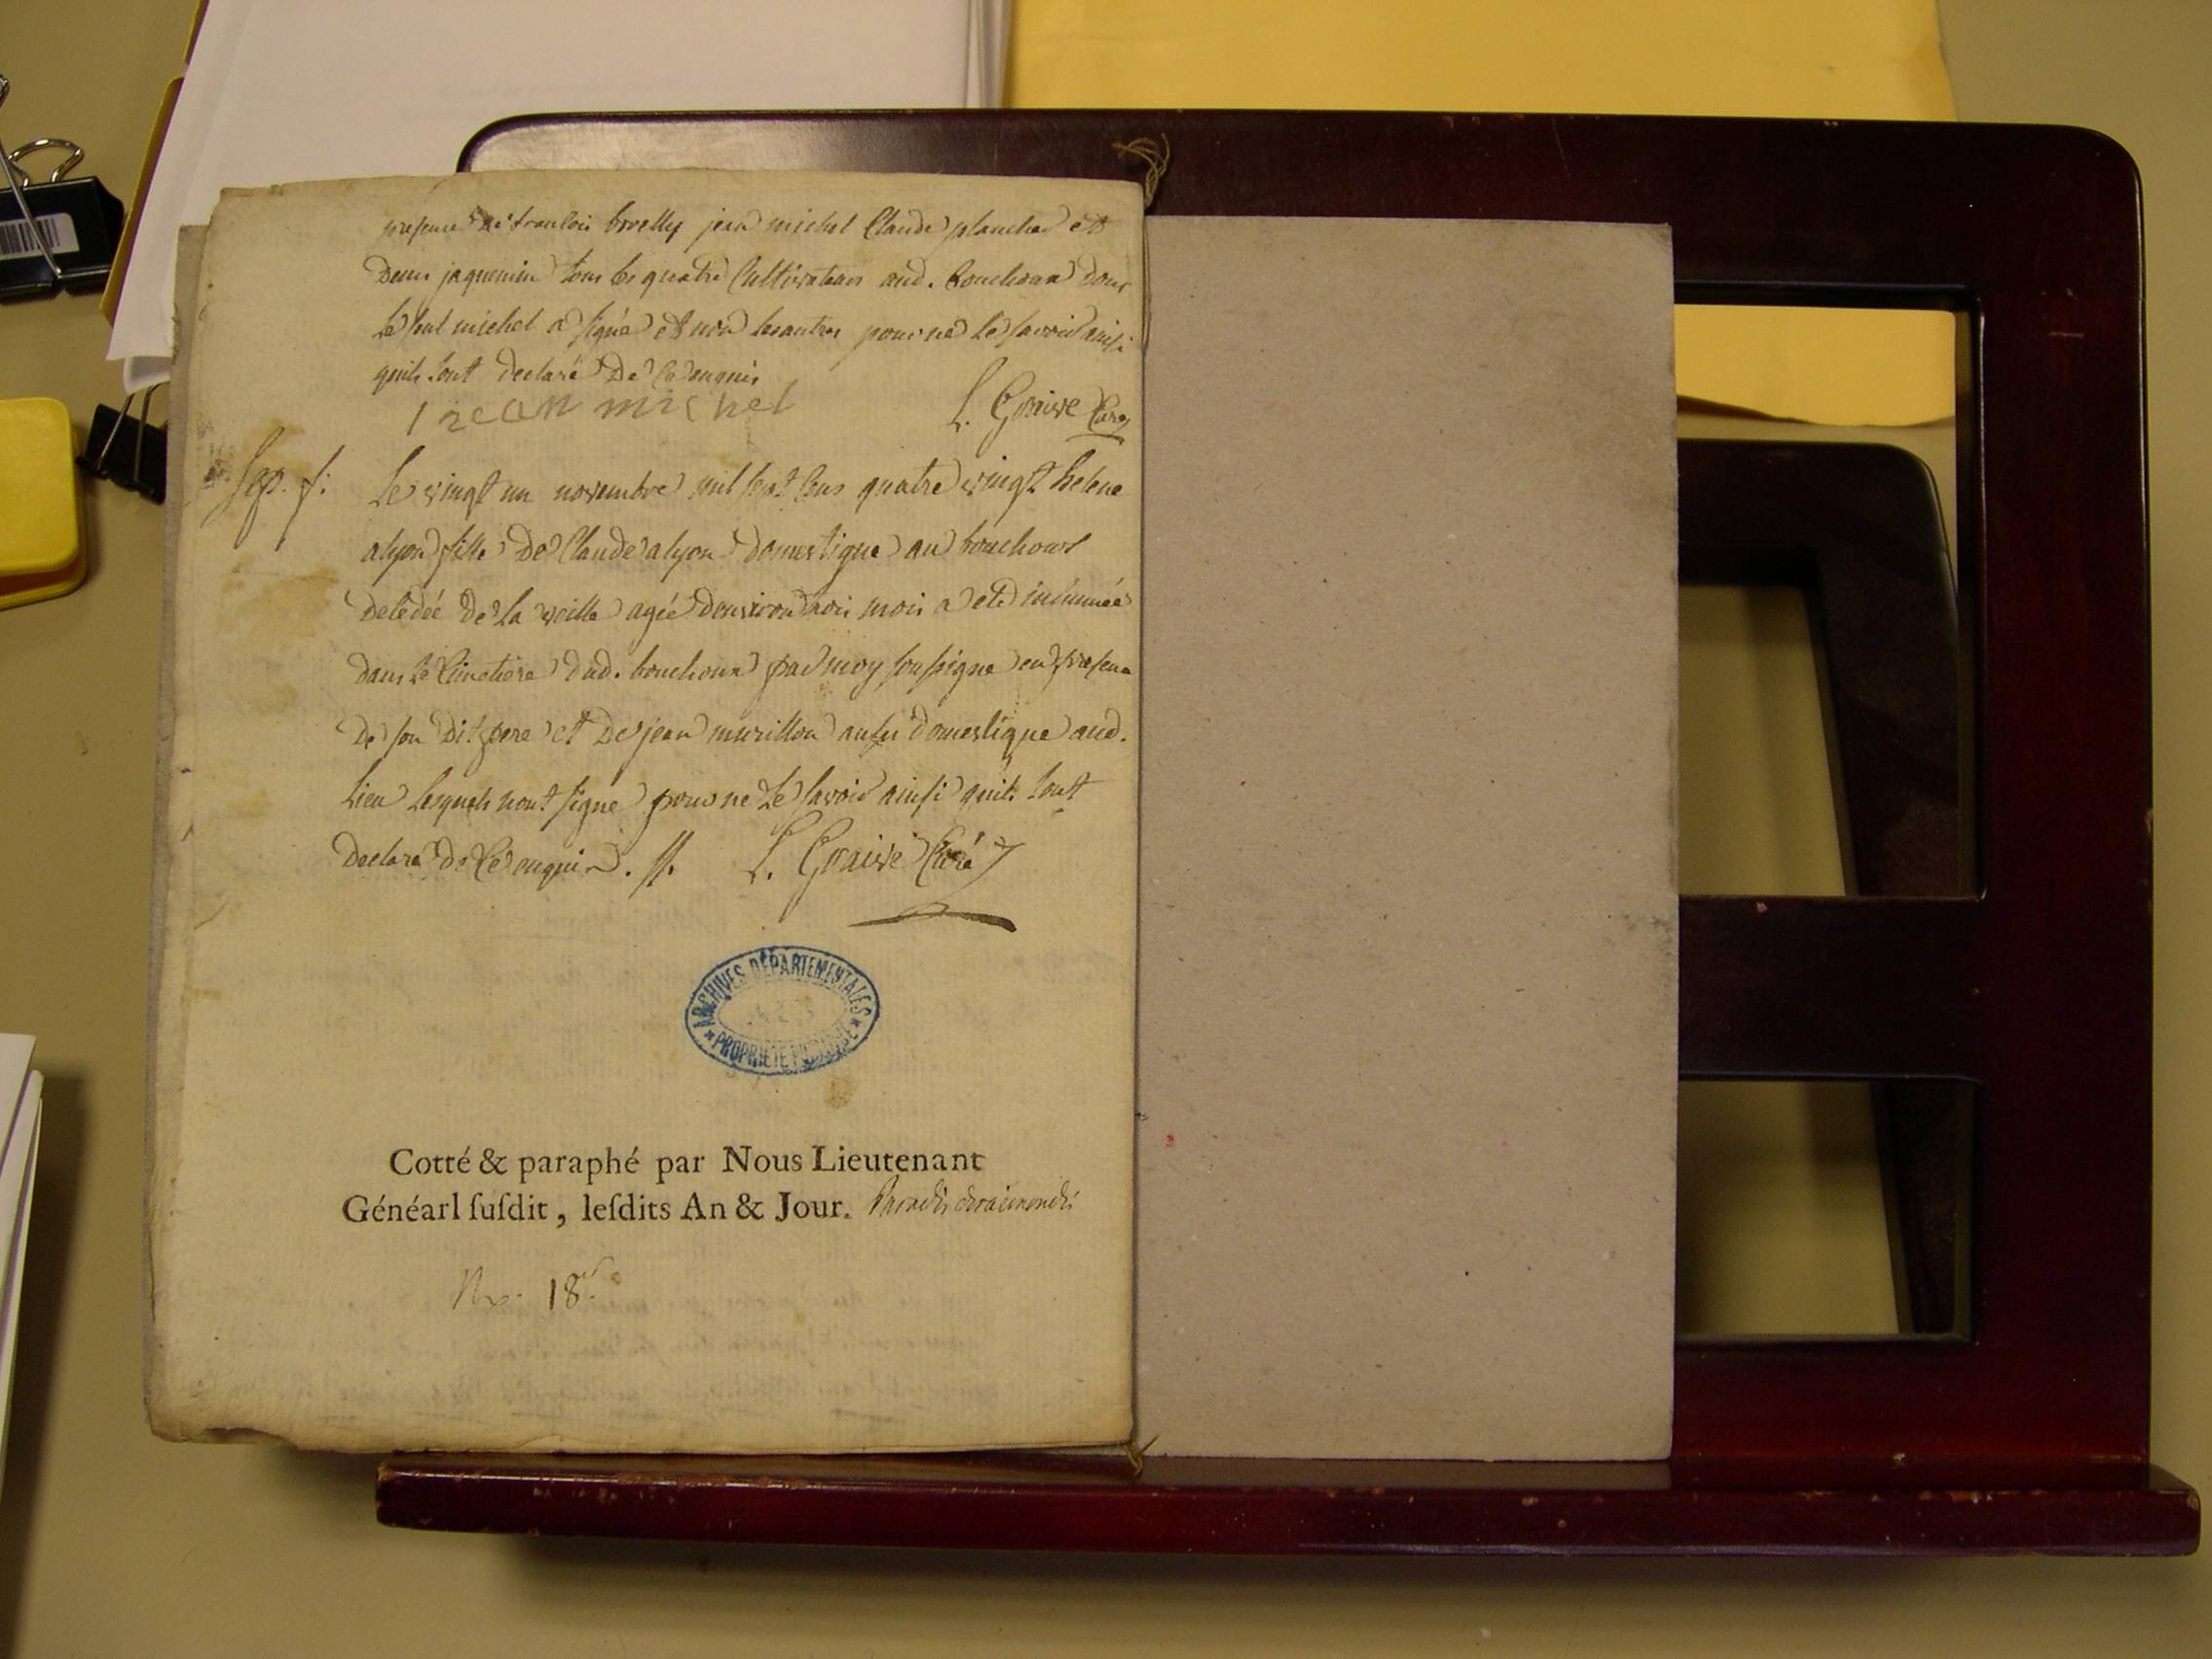 presence de francois broelly jean michel Claude planchet et
Denis jaquemin tous les quatre Cultivateurs aud. bouchoux dont
le seul michel a signé et non les autres pour ne le savoir ainsi
quils l'ont declaré De Ce enquis
jean michel L. Graive Curé
Sep. f: Le vingt un novembre mil sept cens quatre vingt helene
alyon fille De Claude alyon domestique au bouchoux
Decedée De la veille agée denviron trois mois a eté inhumée
dans le Cimetiere dud. bouchoux par moy soussigne en presence
De son Dit pere et De jean murillon aussi domestique aud.
lieu lesquels n'ont signe pour ne le savoir ainsi quils l'ont
declaré De Ce enquis. //. L. Graive Curé
ARCHIVES DÉPARTEMENTALES
* PROPRIÉTÉ PUBLIQUE *
Cotté & paraphé par Nous Lieutenant
Généarl ſuſdit, leſdits An & Jour. Paradis deraimondis
18